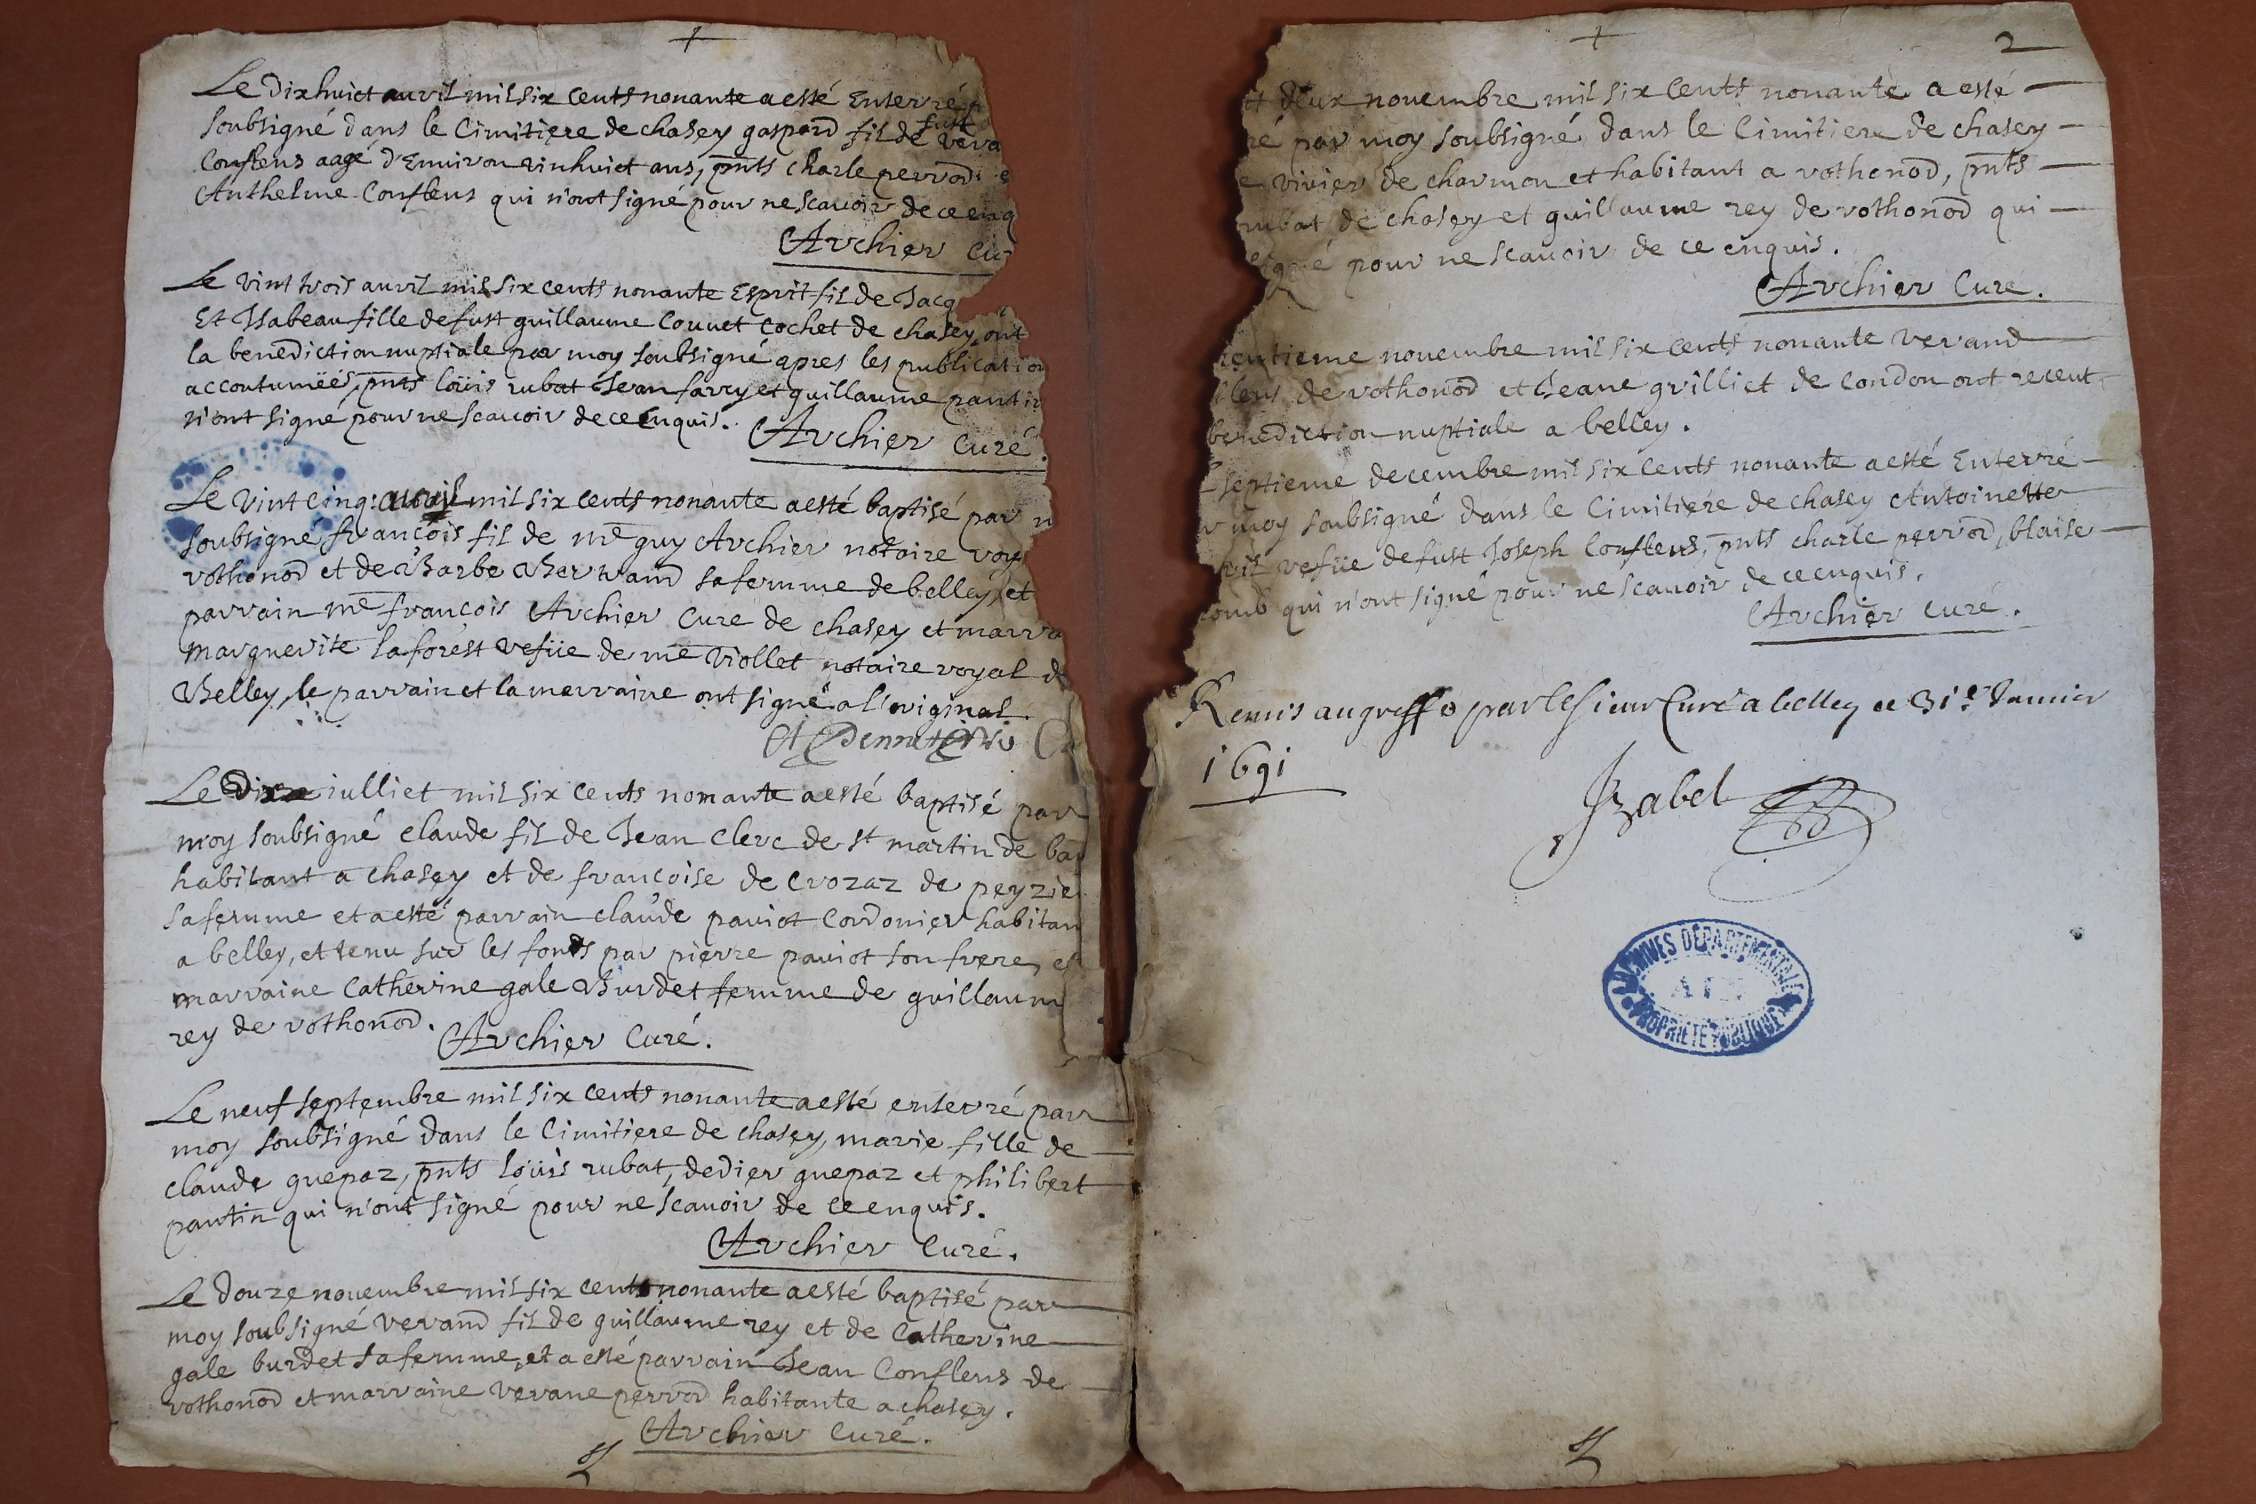 Le dixhuict auvril mil six cents nonante a esté Enterré
soubsigné dans le Cimitiere de chasey gaspard fil de fust
Conflens aagé d'Environ vinhuict ans, pnts charle perrod
Anthelme Conflens qui n'ont signé pour ne scauoir de ce enq
Archier Cu
Le vint trois auvril mil six cents nonante Esprit fil de Jacq
Et Isabeau fille de fust guillaume Couuet Cochet de chasey, ont
la benediction nuptiale par moy soubsigné apres les publication
accoutumëés, pnts loüis rubat Jean farry et guillaume pantin
n'ont signé pour ne scauoir de ce Enquis.
Archier Curé.
Le vint cinq: auvril mil six cents nonante a esté baptisé par
soubsigné françois fil de me guy Archier notaire roy
vothonod et de Barbe Bertrand sa femme de belley, et
parrain me françois Archier Curé de chasey et marra
marguerite laforest vefüe de me Viollet notaire royal d
Belley, le parrain et la marraine ont signé a l'original.
Le dixe iulliet mil six cents nomante a esté baptisé par
moy soubsigné claude fil de Jean Clerc de st martin de ba
habitant a chasey et de francoise de crozaz de peyzie
sa femme et a esté parrain claude pauiot Cordonier habitan
a belley, et tenu sur les fonds par pierre pauiot son frere, e
marraine Catherine gale Burdet femme de guillaum
rey de vothonod.
Archier Curé.
Le neuf septembre mil six cents nonante a esté enterré par
moy soubsigné dans le Cimitiere de chasey, marie fille de
claude guepaz, pnts loüis rubat, dedier guepaz et philibert
pantin qui n'ont signé pour ne scauoir de ce enquis.
Archier Curé.
Le douze nouembre mil six cents nonante a esté baptisé par
moy soubsigné verand fil de guillaume rey et de Catherine
gale burdet sa femme, et a esté parrain Jean Conflens de
vothonod et marraine verane perrod habitante a chasey.
Archier Curé.
2
deux nouembre mil six cents nonante a esté
ré par moy soubsigné dans le Cimitiere de chasey
vivier de charmon et habitant a vothonod, pnts
rubat de chasey et guillaume rey de vothonod qui
signé pour ne scauoir de ce enquis.
Archier Curé.
rentieme nouembre mil six cents nonante verand
flens de vothonod et Jeane grilliet de Condon ont receut
benediction nuptiale a belley.
septieme decembre mil six cents nonante a esté Enterré
moy soubsigné dans le Cimitiere de chasey Antoinette
vefüe de fust Joseph Conflens, pnts charle perrod, blaise
comb qui n'ont signé pour ne scauoir de ce enquis.
Archier Curé.
Remis au greffe par le sieur Curé a belley ce 31e Januier
1691
Jzabel
ARCHIVES DÉPARTEMENTALES
AIN
PROPRIÉTÉ PUBLIQUE